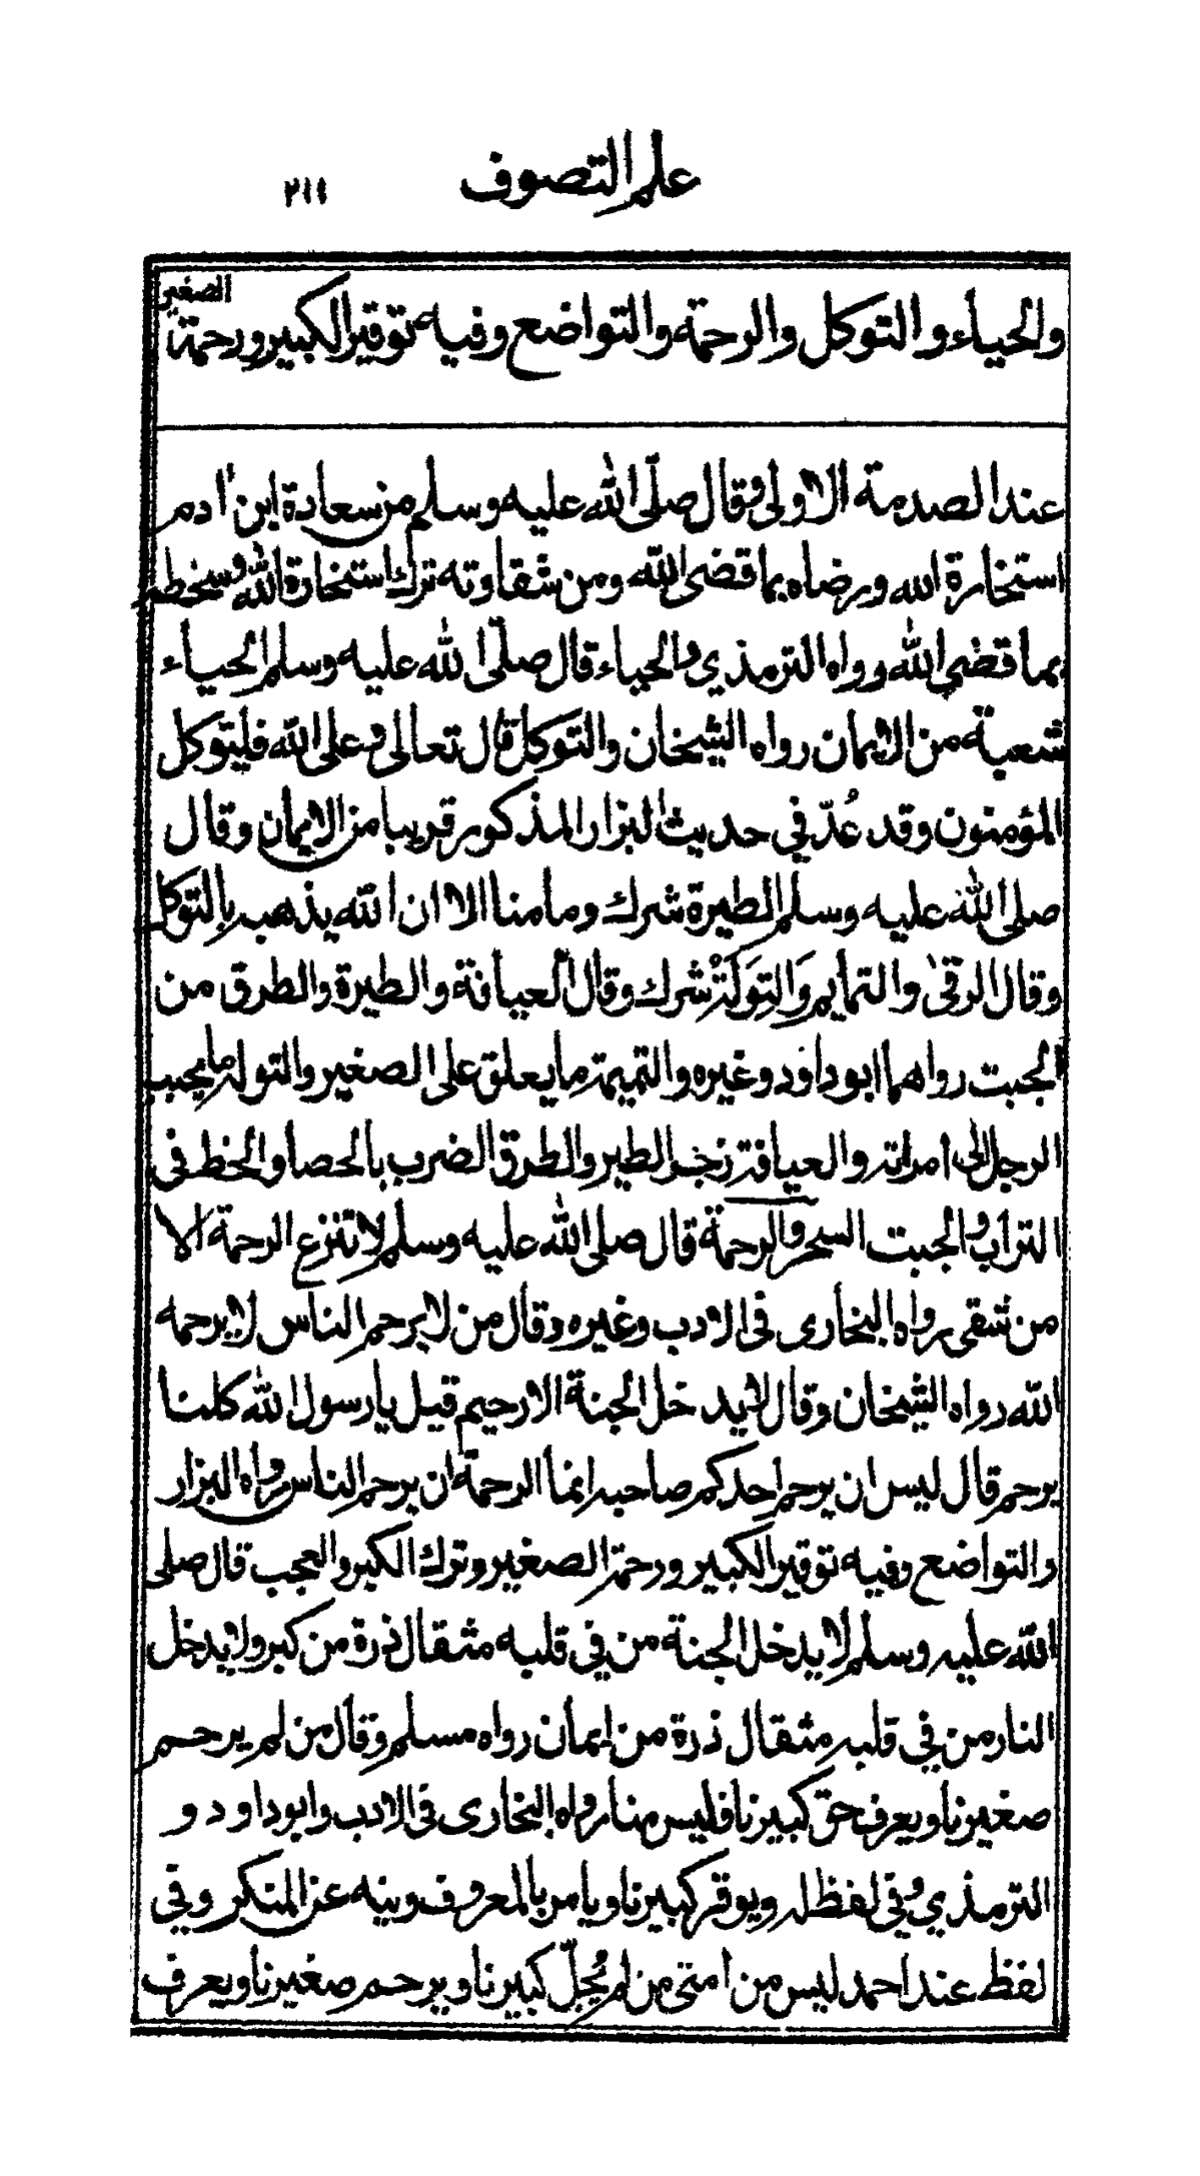 علم التصوف ٢١١
والحياء والتوكل والرحمة والتواضع وفيه توقير الكبير ورحمة الصغير
عند الصدمة الاولى وقال صلّى الله عليه وسلم من سعادة ابن ادم
استخارة الله ورضاه بما قضى الله ومن شقاوته ترك استخارة الله وسخطه
بما قضى الله رواه الترمذي والحياء قال صلّى الله عليه وسلم الحياء
شعبة من الايمان رواه الشيخان والتوكل قال تعالى وعلى الله فليتوكل
المؤمنون وقد عُدّ في حديث البزار المذكور قريبا من الايمان وقال
صلى الله عليه وسلم الطيرة شرك وما منا الا ان الله يذهبه بالتوكل
وقال الرقى والتمايم وَالتِوَلَةُ شرك وقال العيافة والطيرة والطرق من
الجبت رواهما ابو داود وغيره والتميمة ما يعلق على الصغير والتولة ما يحبب
الرجل الى امراته والعيافة زجر الطير والطرق الضرب بالحصا والخط فى
التراب والجبت السحر والرحمة قال صلى الله عليه وسلم لا تنزع الرحمة الا
من شقى رواه البخارى فى الادب وغيره وقال من لا يرحم الناس لا يرحمه
الله رواه الشيخان وقال لا يدخل الجنة الا رحيم قيل يا رسول الله كلنا
يرحم قال ليس ان يرحم احدكم صاحبه انما الرحمة ان يرحم الناس رواه البزار
والتواضع وفيه توقير الكبير ورحمة الصغير وترك الكبر والعجب قال صلى
الله عليه وسلم لا يدخل الجنة من في قلبه مثقال ذرة من كبر ولا يدخل
النار من في قلبه مثقال ذرة من ايمان رواه مسلم وقال من لم يرحم
صغيرنا ويعرف حق كبيرنا فليس منا رواه البخارى فى الادب وابو داود و
الترمذي وفي لفظ له ويوقر كبيرنا ويامر بالمعروف وينه عن المنكر وفي
لفظ عند احمد ليس من امتى من لم يُجلّ كبيرنا ويرحم صغيرنا ويعرف